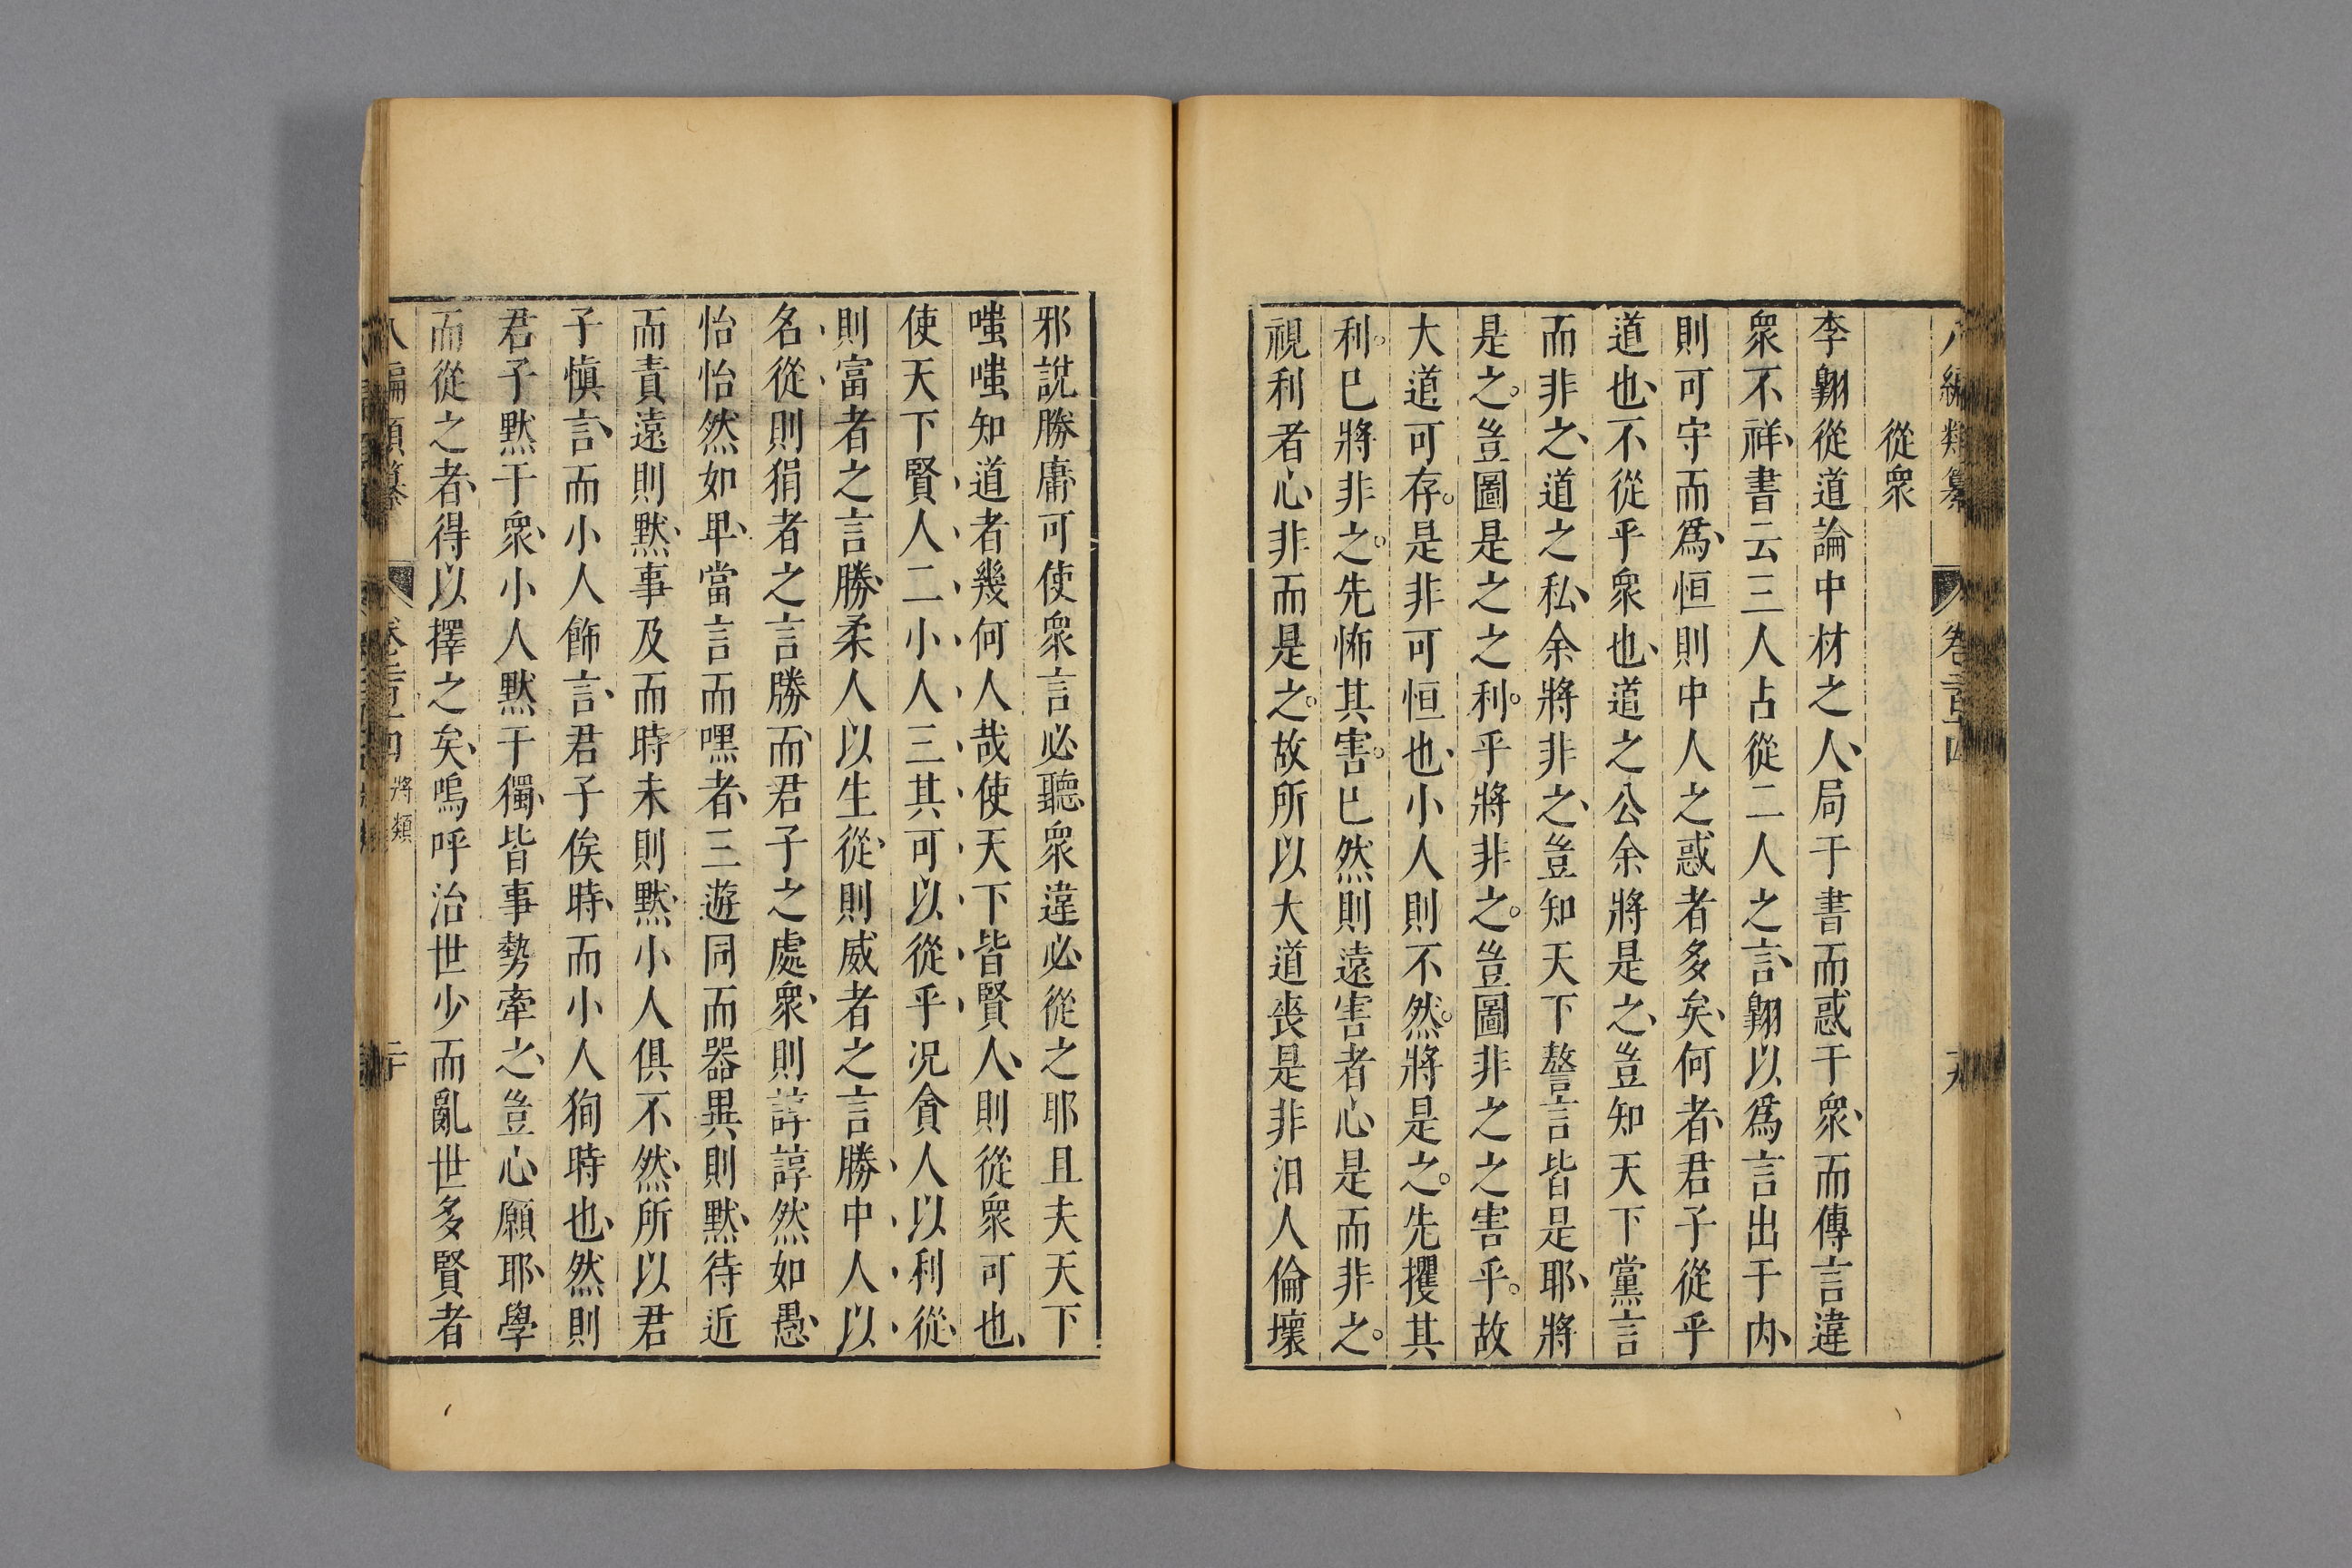 八編類纂 卷二百十四
從衆
李翺從道論中材之人、局于書而惑于衆、而傳言違
衆不祥、書云三人占從二人之言、翺以爲言出于内、
則可守而爲、恒則中人之惑者多矣、何者、君子從乎
道也、不從乎衆也、道之公余將是之、豈知天下黨言
而非之、道之私、余將非之、豈知天下謷言皆是耶、將
是之。豈圖是之之利。乎將非之。豈圖非之之害乎。故
大道可存。是非可恒也、小人則不然。將是之。先攫其
利。已將非之。先怖其害。已然則遠害者心是而非之。
視利者心非而是之。故所以大道喪是非汨人倫壞
邪說勝庸可使衆言必聽、衆違必從之耶且夫天下
嗤嗤知道者幾何人哉使天下皆賢人、則從衆可也、
使天下賢人二小人三其可以從乎況貪人以利從、
則富者之言勝、柔人以生從、則威者之言勝、中人以
名從則狷者之言勝、而君子之處衆、則諄諄然如愚、
怡怡然如卑、當言而嘿者、三遊同而器異則默、待近
而責遠則默、事及而時未則默、小人俱不然、所以君
子慎言、而小人飾言、君子俟時、而小人狥時也、然則
君子默于衆、小人默于獨、皆事勢牽之、豈心願耶、學
而從之者、得以擇之矣、嗚呼治世少而亂世多賢者
八編類纂 卷二百十四 將類 二十